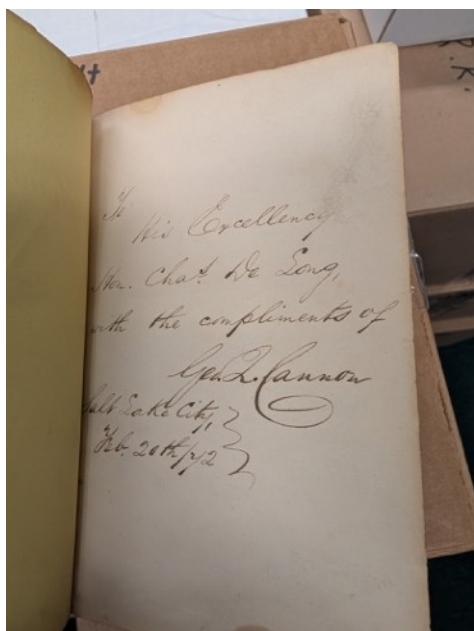 To
His Excellency
Hon. Chas. De Long,
with the compliments of
Geo. Q. Cannon
Salt Lake City,
Feb. 20th/72